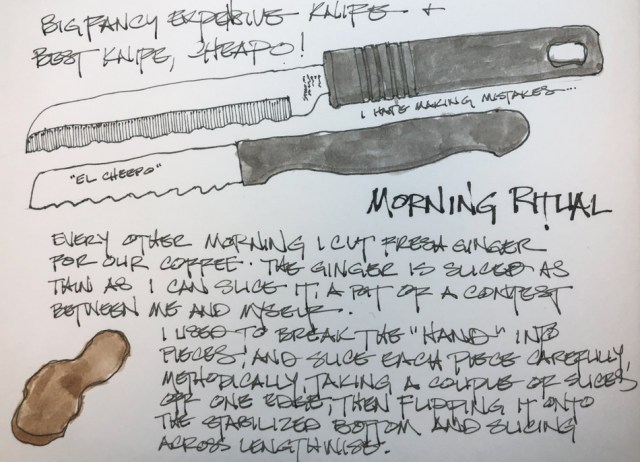 BIG FANCY EXPENSIVE KNIFE +
BEST KNIFE, CHEAPO!
I HATE MAKING MISTAKES...
"EL CHEEPO"
MORNING RITUAL
EVERY OTHER MORNING I CUT FRESH GINGER
FOR OUR COFFEE. THE GINGER IS SLICED AS
THIN AS I CAN SLICE IT, A BIT OF A CONTEST
BETWEEN ME AND MYSELF.
I USED TO BREAK THE "HAND" INTO
PIECES, AND SLICE EACH PIECE CAREFULLY,
METHODICALLY, TAKING A COUPLE OF SLICES
OFF ONE EDGE, THEN FLIPPING IT ONTO
THE STABILIZED BOTTOM AND SLICING
ACROSS LENGTHWISE.